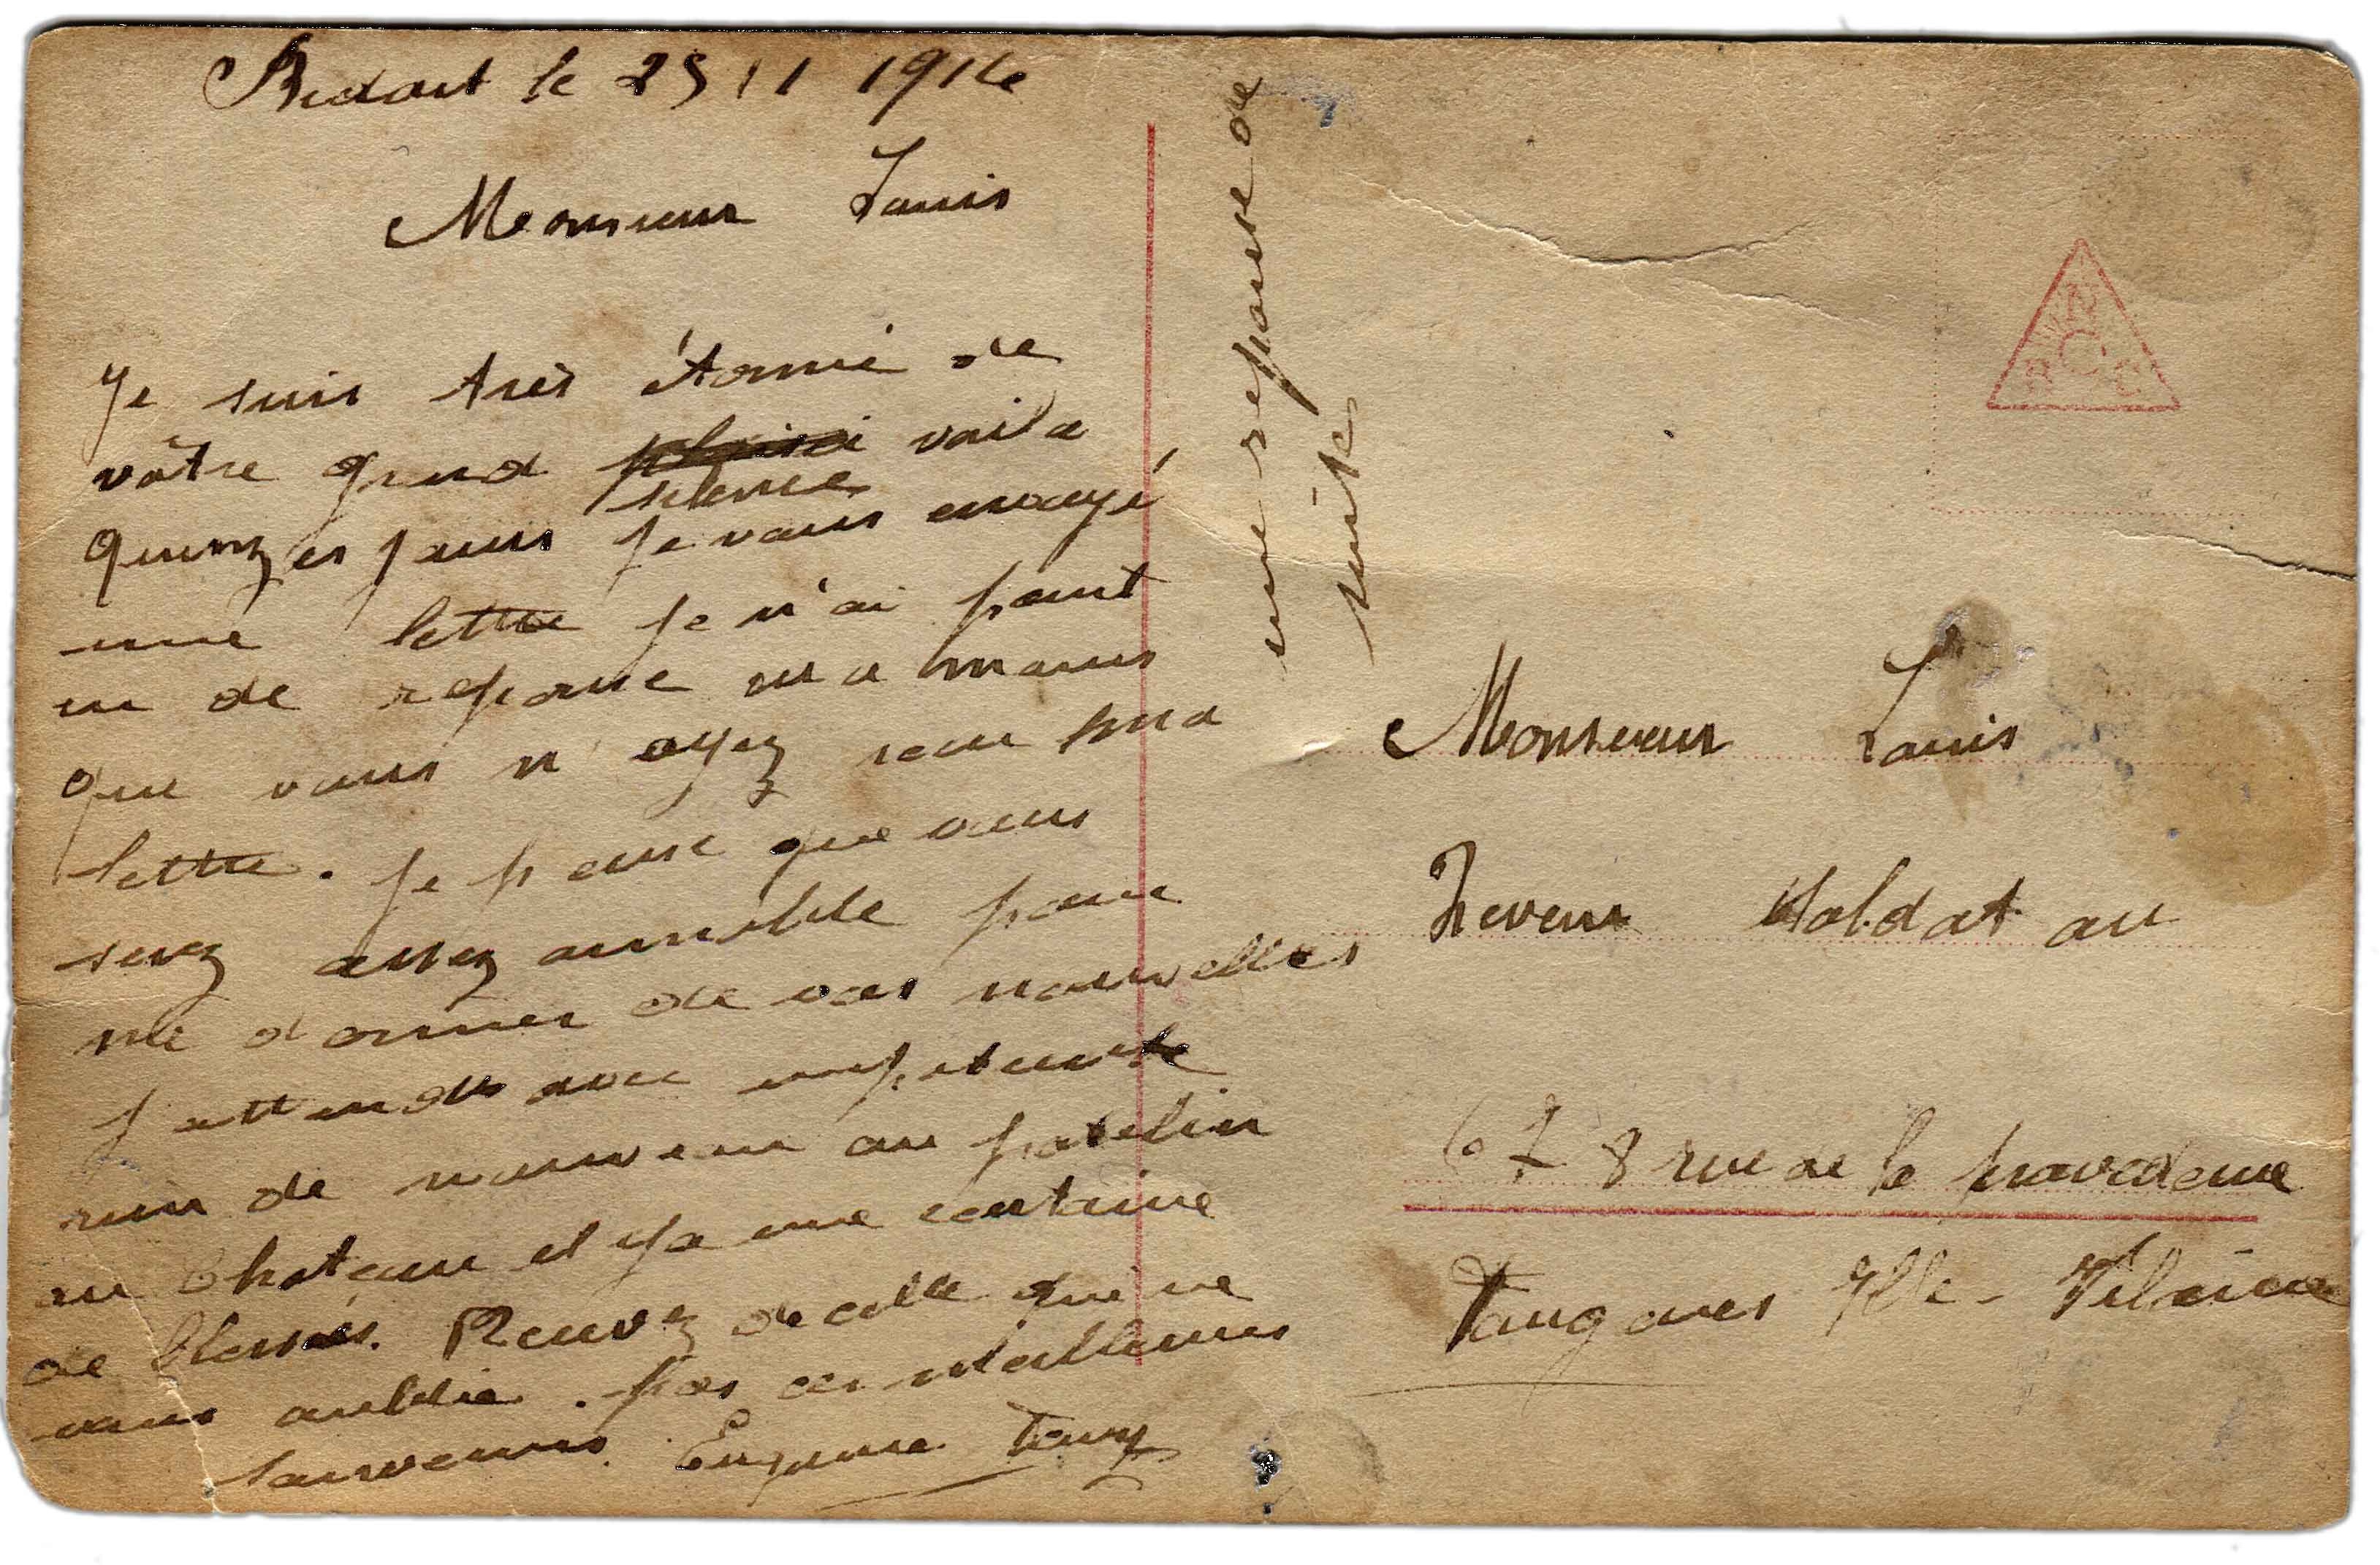 Bidart le 25 11 1914
Monsieur Louis
Je suis très étonné de
vôtre grand silence voila
quinzes jours je vous envoyé
une lettre je n'ai point
eu de reponse a moins
que vous n'ayez recu ma
lettre. Je pense que vous
serez assez aimable pour
me donner de vos nouvelles
J attends avec impatiente
rien de nouveau au patelin
au Chateau il ya une centaine
de blessés. Recevez de celle qui ne
vous oublie. pas ces meilleures
souvenirs. Eugenie
une reponse de
suite
Monsieur Louis
Soldat au
67 8 rue de la providence
Fougares Ille-Vilaine